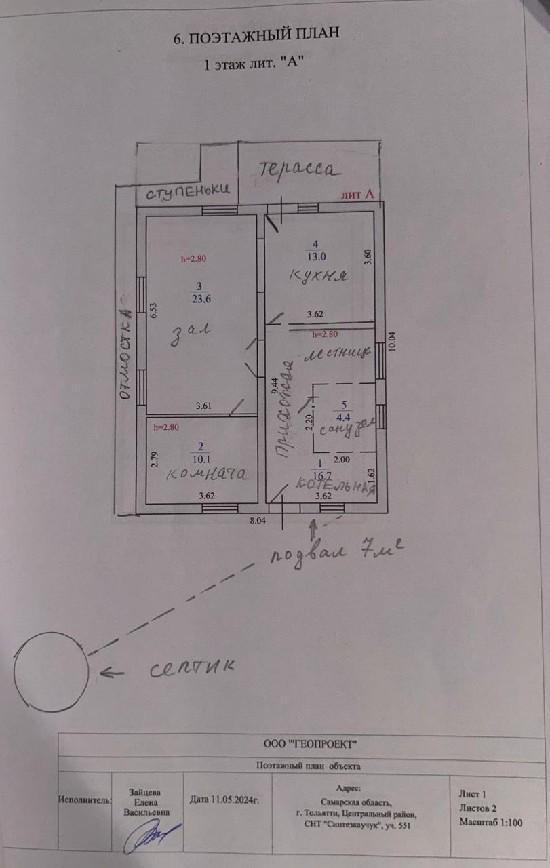 6. ПОЭТАЖНЫЙ ПЛАН
1 этаж лит. "А"
терасса
ступеньки
лит А
h=2.80
3
23.6
зал
6.53
3.61
4
13.0
кухня
3.60
3.62
h=2.80
лестница
10.04
9.44
прихожая
5
4.4
санузел
2.20
2.00
1
16.7
котельная
1.62
3.62
h=2.80
2
10.1
комната
2.79
3.62
8.04
отмостка
подвал 7 м²
септик
ООО "ГЕОПРОЕКТ"
Поэтажный план объекта
Исполнитель:
Зайцева
Елена
Васильевна
Дата 11.05.2024г.
Адрес:
Самарская область,
г. Тольятти, Центральный район,
СНТ "Синтезкаучук", уч. 551
Лист 1
Листов 2
Масштаб 1:100